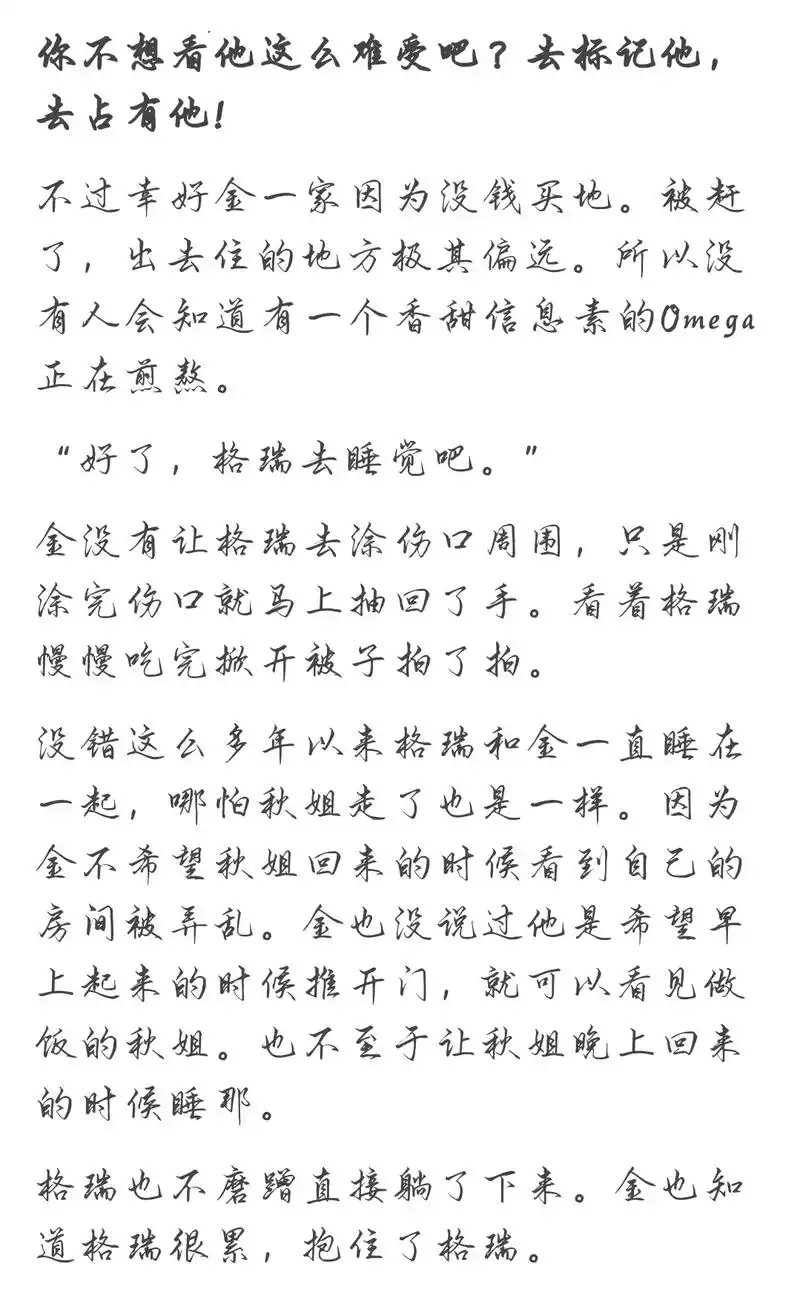 你不想看他这么难受吧？去标记他，
去占有他！
不过幸好金一家因为没钱买地。被赶
了，出去住的地方极其偏远。所以没
有人会知道有一个香甜信息素的Omega
正在煎熬。
“好了，格瑞去睡觉吧。”
金没有让格瑞去涂伤口周围，只是刚
涂完伤口就马上抽回了手。看着格瑞
慢慢吃完掀开被子拍了拍。
没错这么多年以来格瑞和金一直睡在
一起，哪怕秋姐走了也是一样。因为
金不希望秋姐回来的时候看到自己的
房间被弄乱。金也没说过他是希望早
上起来的时候推开门，就可以看见做
饭的秋姐。也不至于让秋姐晚上回来
的时候睡那。
格瑞也不磨蹭直接躺了下来。金也知
道格瑞很累，抱住了格瑞。